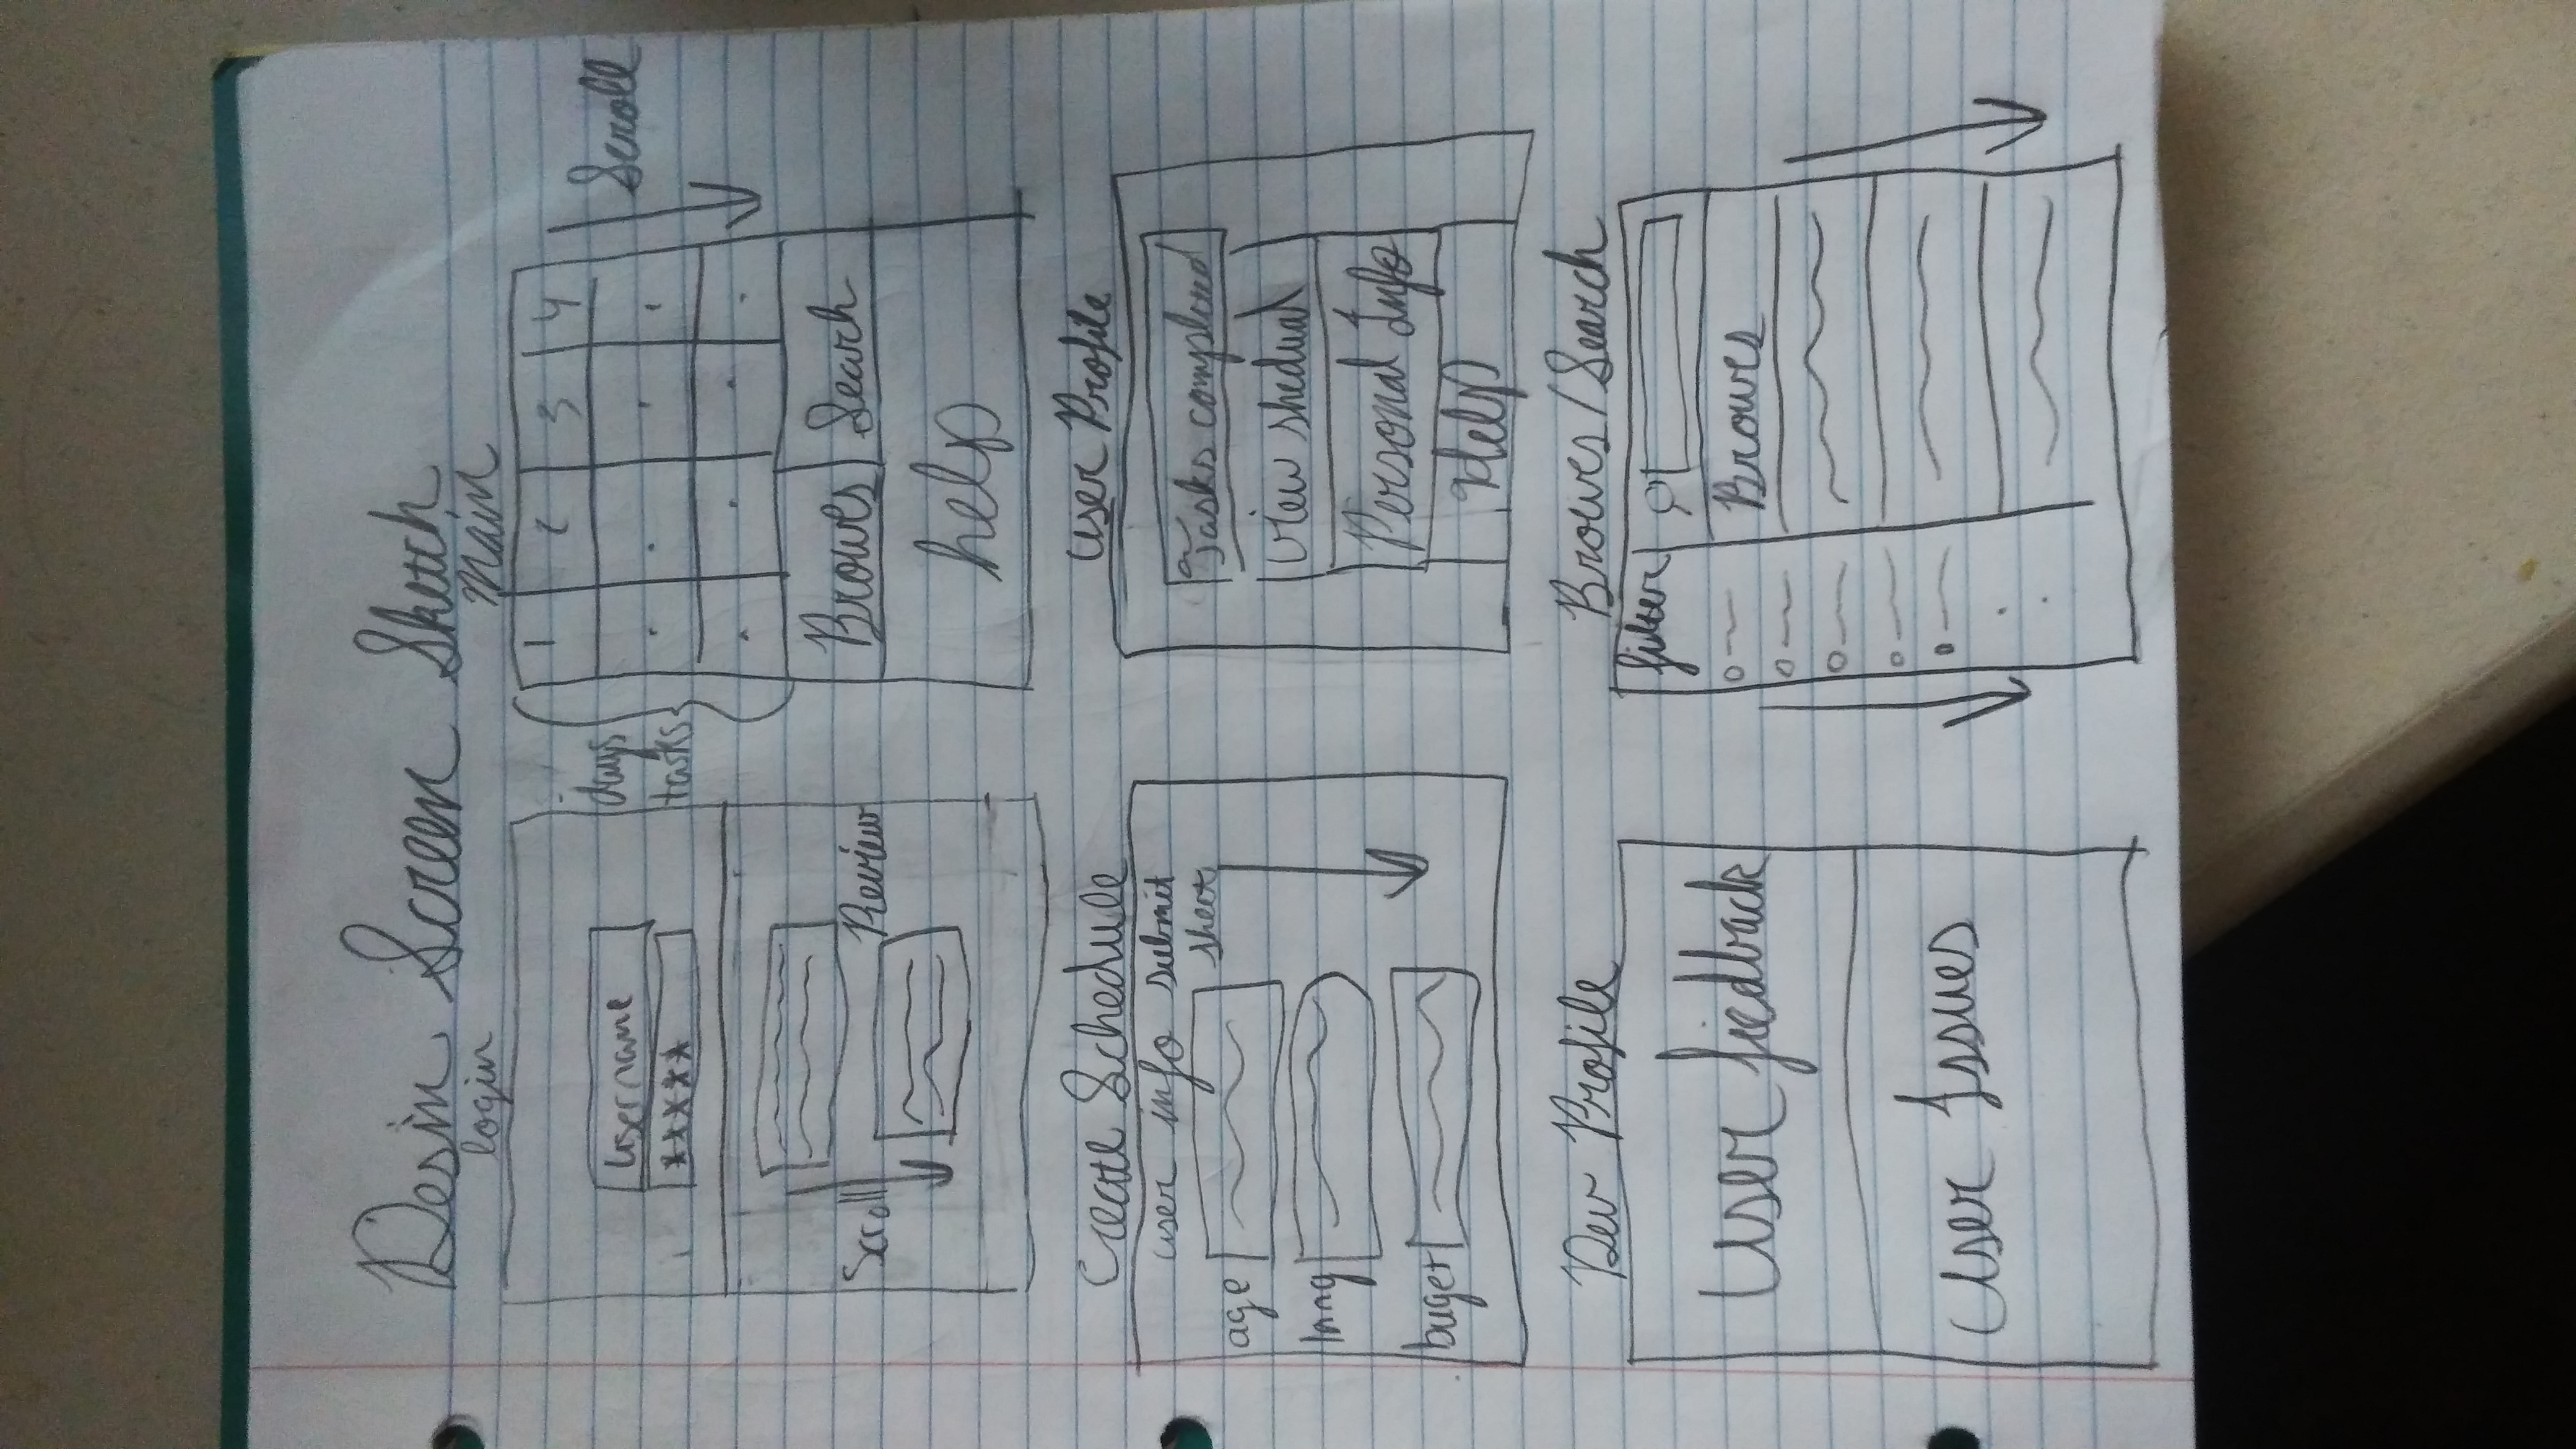 Desin Screen Sketch
login
username
*****
Scroll
Review
main
days
tasks
1 2 3 4
Scroll
Browes Search
help
Create Schedule
user info submit
sheet
age
lang
buget
User Profile
Tasks completed
view shedual
Personal Info
Help
Dev Profile
User fiedback
User Issues
Browes/Search
filter
Browes